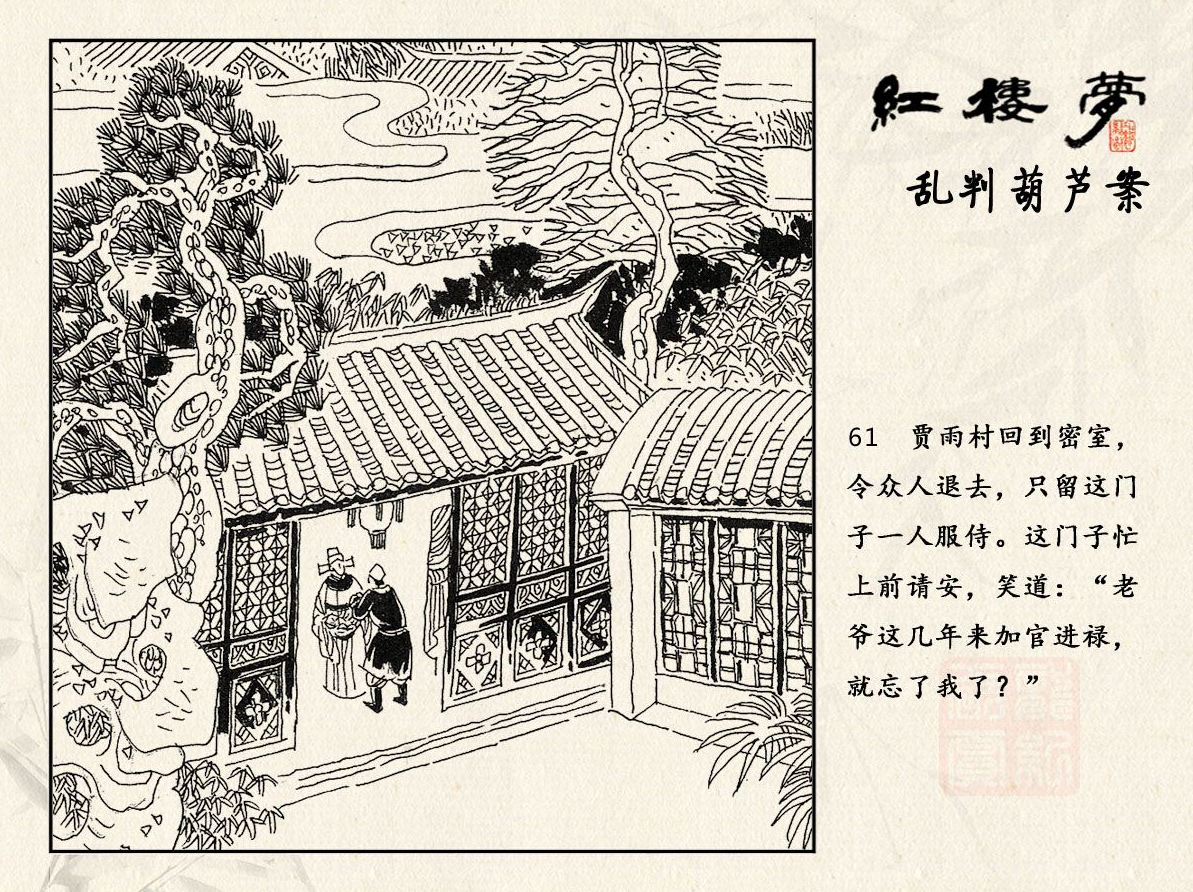 紅樓夢
乱判葫芦案
61 贾雨村回到密室，
令众人退去，只留这门
子一人服侍。这门子忙
上前请安，笑道：“老
爷这几年来加官进禄，
就忘了我了？”